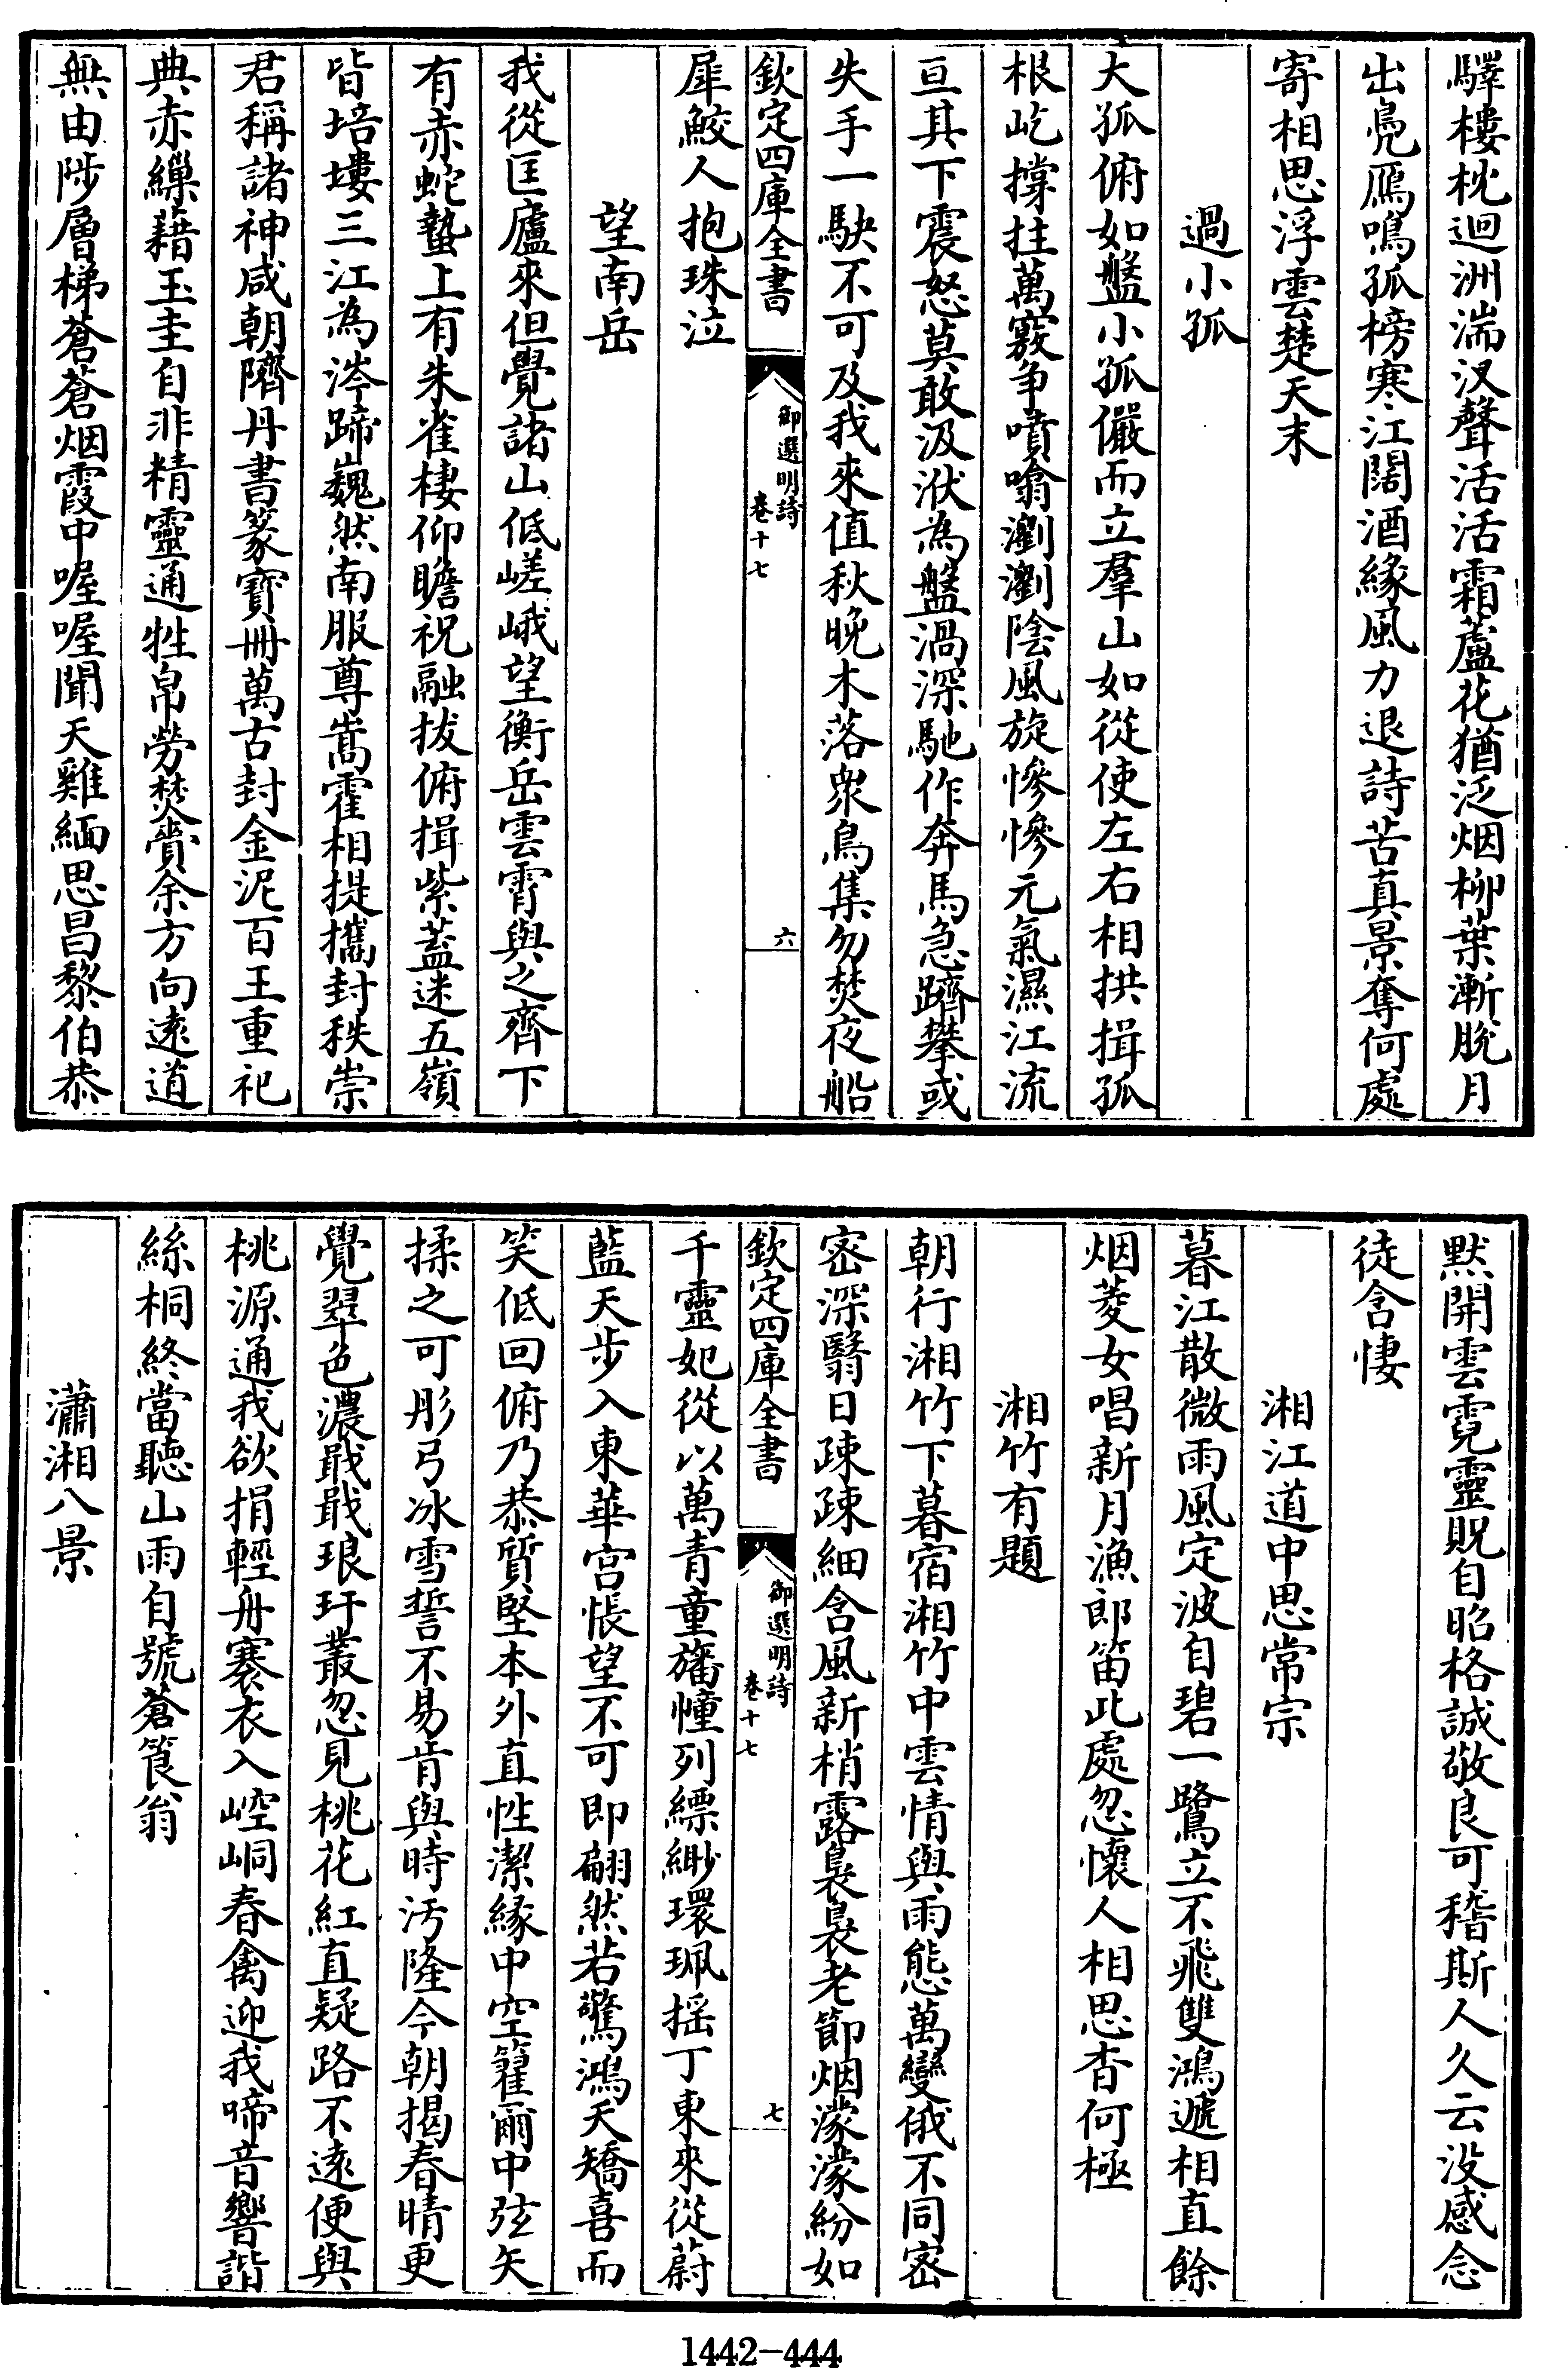 驛樓枕迴洲湍汊聲活活霜蘆花猶泛烟柳葉漸脫月
出鳧鴈鳴孤榜寒江闊酒緣風力退詩苦真景奪何處
寄相思浮雲楚天末
過小孤
大孤俯如盤小孤儼而立羣山如從使左右相拱揖孤
根屹撐拄萬竅争噴嗡瀏瀏陰風旋慘慘元氣濕江流
亘其下震怒莫敢汲洑為盤渦深馳作奔馬急躋攀或
失手一駃不可及我來值秋晚木落衆鳥集勿焚夜船
欽定四庫全書
御選明詩
卷十七
六
犀鮫人抱珠泣
望南岳
我從匡廬來但覺諸山低嵯峨望衡岳雲霄與之齊下
有赤蛇蟄上有朱雀棲仰瞻祝融拔俯揖紫蓋迷五嶺
皆培塿三江為涔蹄巍然南服尊嵩霍相提攜封秩崇
君稱諸神咸朝隮丹書篆寶冊萬古封金泥百王重祀
典赤繅藉玉圭自非精靈通牲帛勞焚賫余方向遠道
無由陟層梯蒼蒼烟霞中喔喔聞天雞緬思昌黎伯恭
默開雲霓靈貺自昭格誠敬良可稽斯人久云没感念
徒含悽
湘江道中思常宗
暮江散微雨風定波自碧一鷺立不飛雙鴻遞相直餘
烟菱女唱新月漁郎笛此處忽懷人相思杳何極
湘竹有題
朝行湘竹下暮宿湘竹中雲情與雨態萬變俄不同密
密深翳日疎疎細含風新梢露裊裊老節烟濛濛紛如
欽定四庫全書
御選明詩
卷十七
七
千靈妃從以萬青童旛幢列縹緲環珮摇丁東來從蔚
藍天步入東華宫悵望不可即翩然若驚鴻夭矯喜而
笑低回俯乃恭質堅本外直性潔緣中空籊爾中弦矢
揉之可彤弓冰雪誓不易肯與時汚隆今朝揭春晴更
覺翠色濃戢戢琅玕叢忽見桃花紅直疑路不遠便與
桃源通我欲捐輕舟褰衣入崆峒春禽迎我啼音響諧
絲桐終當聽山雨自號蒼筤翁
瀟湘八景
1442-444